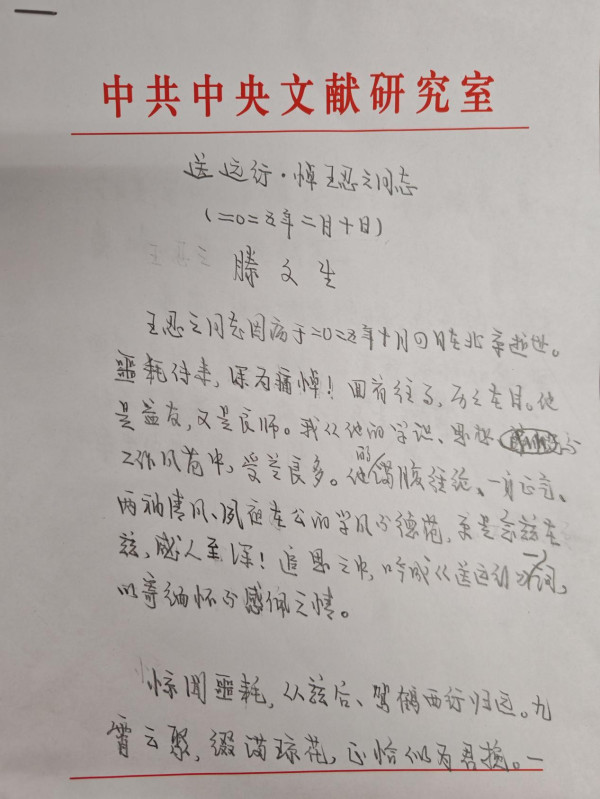 中共中央文献研究室
送远行·悼王忍之同志
(二〇二五年二月十日)
滕文生
王忍之同志因病于二〇二五年十月四日在北京逝世。
噩耗传来,深为痛悼!回首往事,历历在目。他
是益友,又是良师。我从他的学识、思想
工作风范中,受益良多。他的满腹经纶、一身正气、
两袖清风、夙夜在公的学风和德范,更是念兹在
兹,感人至深!追思之中,吟成《送远行》一词,
以寄缅怀和感佩之情。
惊闻噩耗,从兹后、驾鹤西行归远。九
霄云聚,缀满琼花,正恰似为君挽。一